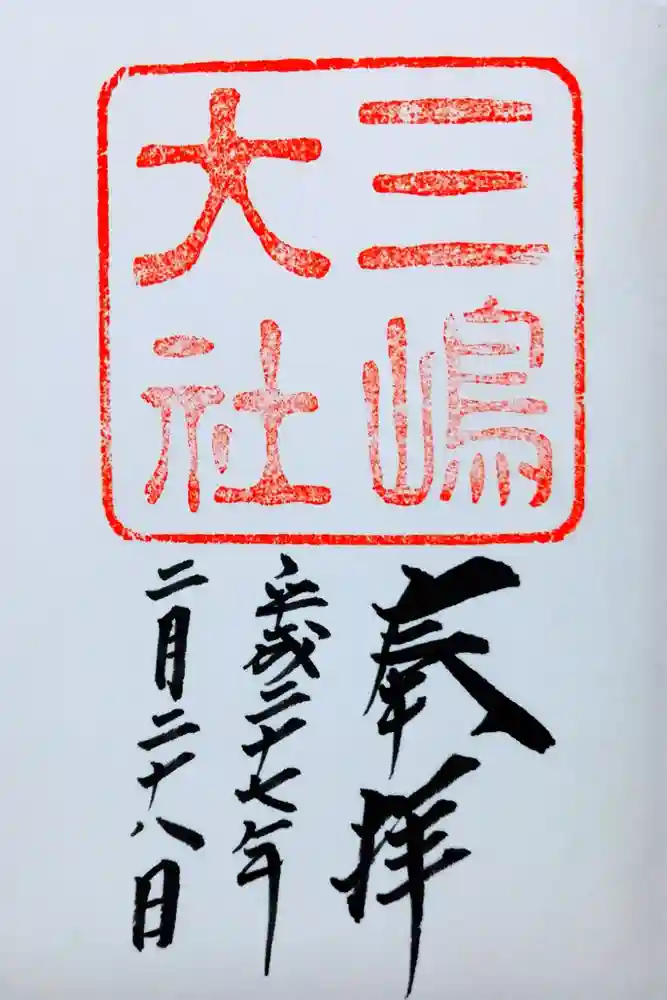 三嶋
大社
奉拝
平成二十七年
二月二十八日